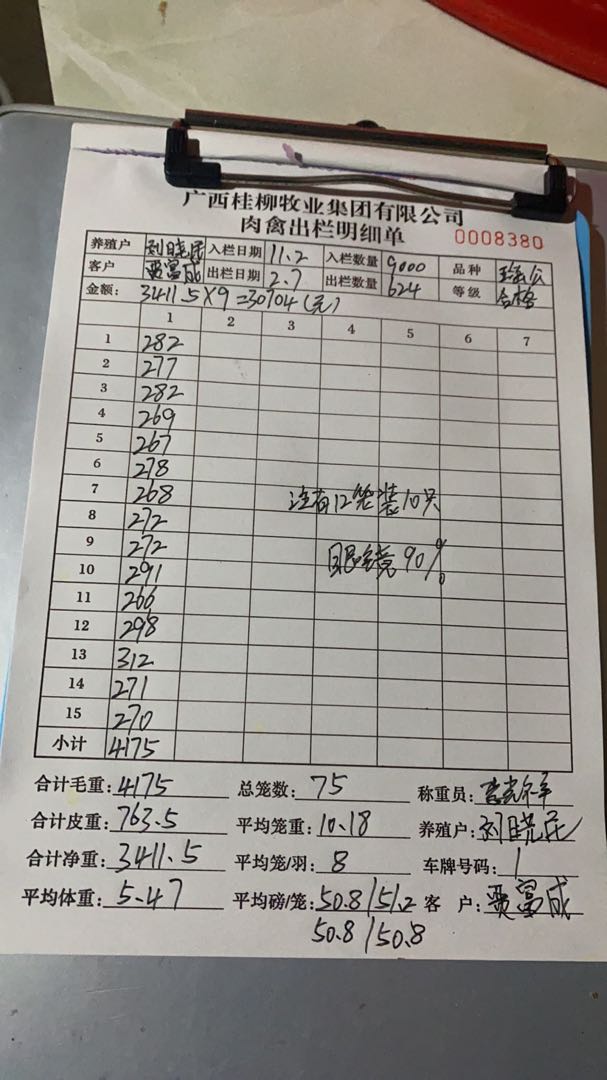 广西桂柳牧业集团有限公司
肉禽出栏明细单 0008380
养殖户 刘晓民 入栏日期 11.2 入栏数量 9000 品种
客户 贾富成 出栏日期 2.7 出栏数量 624 等级 合格
金额: 3411.5×9=30704(元)
1 2 3 4 5 6 7
1 282
2 277
3 282
4 269
5 267
6 278
7 268 注有12笼装10只
8 272
9 272 眼镜90%
10 291
11 266
12 298
13 312
14 271
15 270
小计 4175
合计毛重: 4175 总笼数: 75 称重员:
合计皮重: 763.5 平均笼重: 10.18 养殖户: 刘晓民
合计净重: 3411.5 平均笼/羽: 8 车牌号码: 1
平均体重: 5.47 平均磅/笼: 50.8/51.2 客 户: 贾富成
50.8/50.8